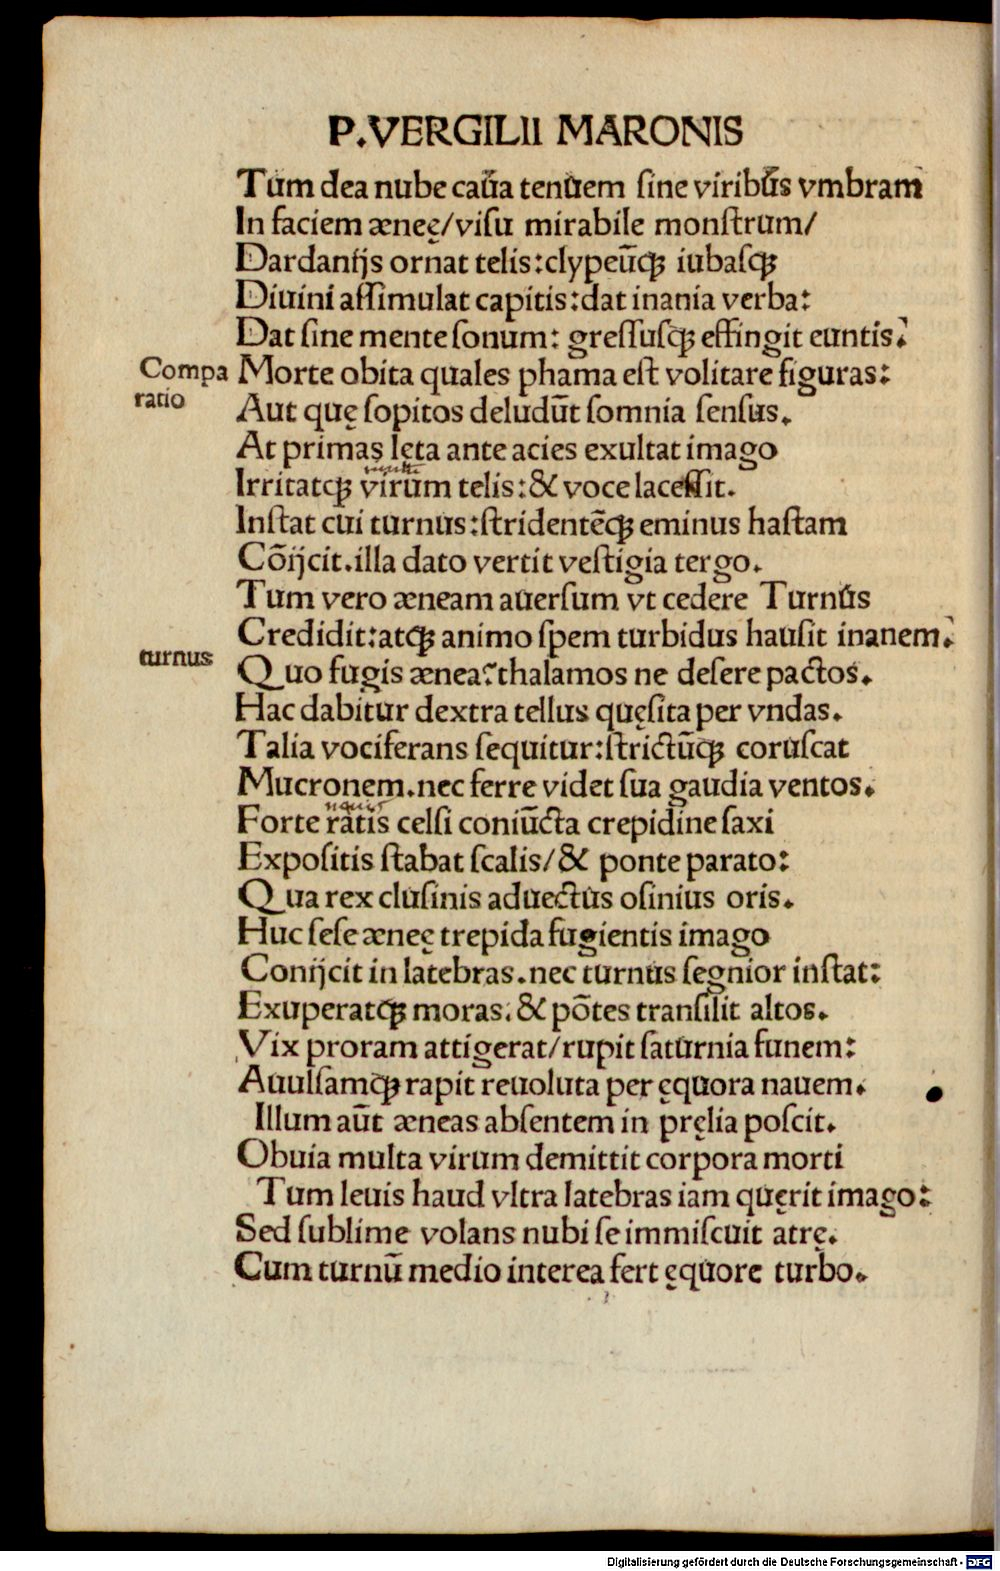 P.VERGILII MARONIS
Tum dea nube caua tenuem sine viribus vmbram
In faciem æneę/visu mirabile monstrum/
Dardanijs ornat telis:clypeūqꝫ iubasqꝫ
Diuini assimulat capitis:dat inania verba:
Dat sine mente sonum: gressusqꝫ effingit euntis.
Compa
ratio
Morte obita quales phama est volitare figuras:
Aut quę sopitos deludūt somnia sensus.
At primas lęta ante acies exultat imago
Irritatqꝫ virum telis:& voce lacessit.
Instat cui turnus:stridentēqꝫ eminus hastam
Cōijcit.illa dato vertit vestigia tergo.
Tum vero æneam auersum vt cedere Turnus
Credidit:atqꝫ animo spem turbidus hausit inanem.
turnus
Quo fugis ænea?thalamos ne desere pactos.
Hac dabitur dextra tellus quęsita per vndas.
Talia vociferans sequitur:strictūqꝫ coruscat
Mucronem.nec ferre videt sua gaudia ventos.
nauis
Forte ratis celsi coniūcta crepidine saxi
Expositis stabat scalis/& ponte parato:
Qua rex clusinis aduectus osinius oris.
Huc sese æneę trepida fugientis imago
Conijcit in latebras.nec turnus segnior instat:
Exuperatqꝫ moras.& pōtes transilit altos.
Vix proram attigerat/rupit saturnia funem:
Auulsamqꝫ rapit reuoluta per ęquora nauem.
Illum aūt æneas absentem in pręlia poscit.
Obuia multa virum demittit corpora morti
Tum leuis haud vltra latebras iam quęrit imago:
Sed sublime volans nubi se immiscuit atrę.
Cum turnū medio interea fert ęquore turbo.
Digitalisierung gefördert durch die Deutsche Forschungsgemeinschaft - DFG